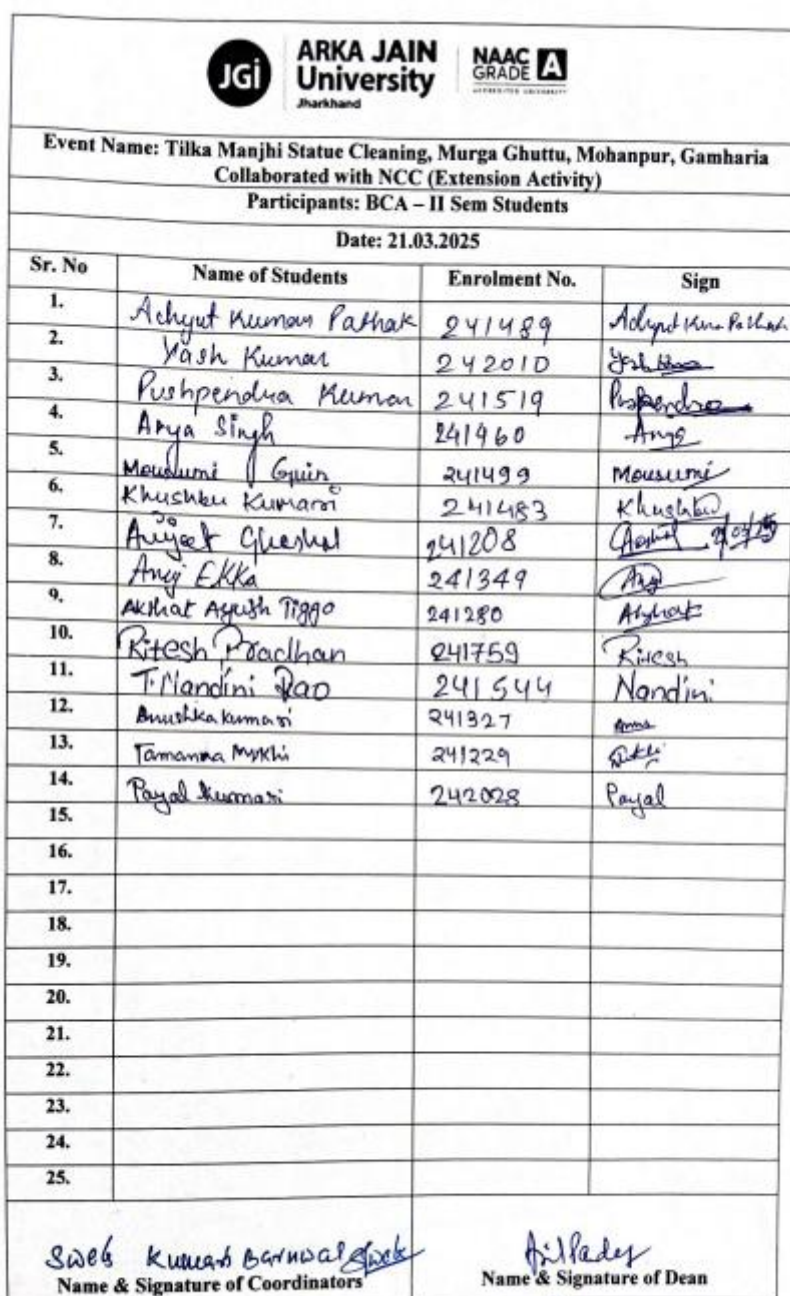 JGi
ARKA JAIN
University
Jharkhand
NAAC
GRADE A
ACCREDITED UNIVERSITY
Event Name: Tilka Manjhi Statue Cleaning, Murga Ghuttu, Mohanpur, Gamharia
Collaborated with NCC (Extension Activity)
Participants: BCA – II Sem Students
Date: 21.03.2025
Sr. No Name of Students Enrolment No. Sign
1. Achyut Kumar Pathak 241489 Achyut Pathak
2. Yash Kumar 242010 Yash
3. Pushpendra Kumar 241519 Puspendra
4. Arya Singh 241960 Arya
5. Mousumi Guin 241499 Mousumi
6. Khushbu Kumari 241483 Khushbu
7. Avijeet Ghoshal 241208 21/03/25
8. Anuj Ekka 241349 Anuj
9. Akshat Ayush Tiggo 241280
10. Ritesh Pradhan 241759 Ritesh
11. T. Nandini Rao 241544 Nandini
12. Anushka Kumari 241327
13. Tamanna Mukhi 241229
14. Payal Kumari 242028 Payal
15.
16.
17.
18.
19.
20.
21.
22.
23.
24.
25.
Kumar Barnwal
Name & Signature of Coordinators Name & Signature of Dean